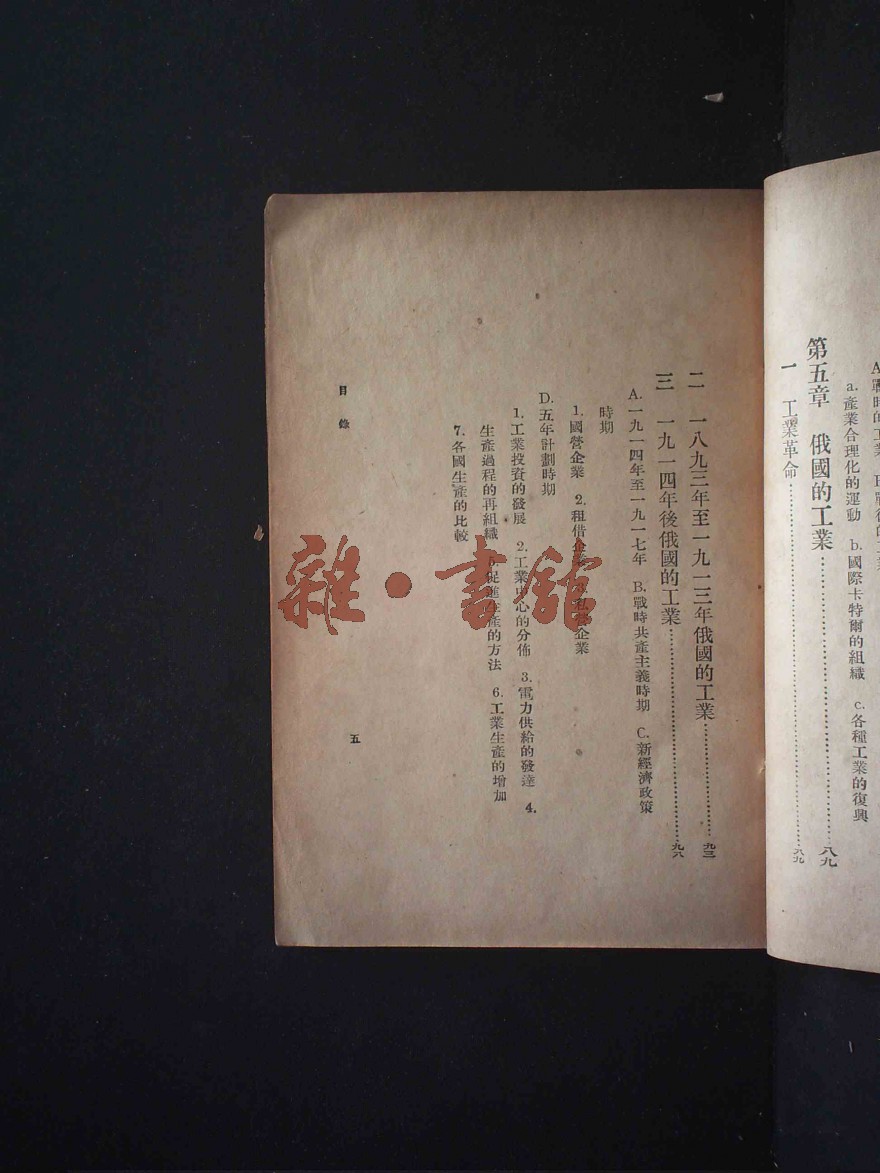 a. 產業合理化的運動 b. 國際卡特爾的組織 c. 各種工業的復興
第五章 俄國的工業⋯⋯⋯⋯⋯⋯⋯⋯八九
一 工業革命⋯⋯⋯⋯⋯⋯⋯⋯八九
二 一八九三年至一九一三年俄國的工業⋯⋯⋯⋯九三
三 一九一四年後俄國的工業⋯⋯⋯⋯⋯⋯九八
A. 一九一四年至一九一七年 B. 戰時共產主義時期 C. 新經濟政策
時期
1. 國營企業 2. 租借企業 3. 私營企業
D. 五年計劃時期
1. 工業投資的發展 2. 工業中心的分佈 3. 電力供給的發達 4.
生產過程的再組織 5. 促進生產的方法 6. 工業生產的增加
7. 各國生產的比較
目錄
五
雜·書館